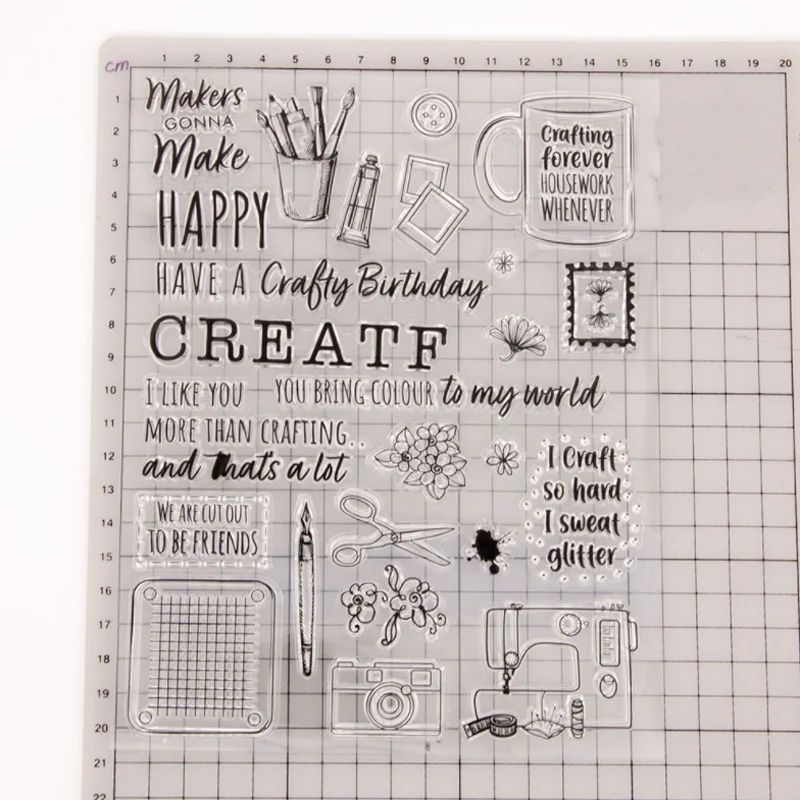 cm
1 2 3 4 5 6 7 8 9 10 11 12 13 14 15 16 17 18 19 20
1
2
3
4
5
6
7
8
9
10
11
12
13
14
15
16
17
18
19
20
21
22
Makers
GONNA
Make
HAPPY
Crafting
forever
HOUSEWORK
WHENEVER
HAVE A Crafty Birthday
CREATF
I LIKE YOU
YOU BRING COLOUR to my world
MORE THAN CRAFTING..
and thats a lot
I Craft
so hard
I sweat
glitter
WE ARE CUT OUT
TO BE FRIENDS